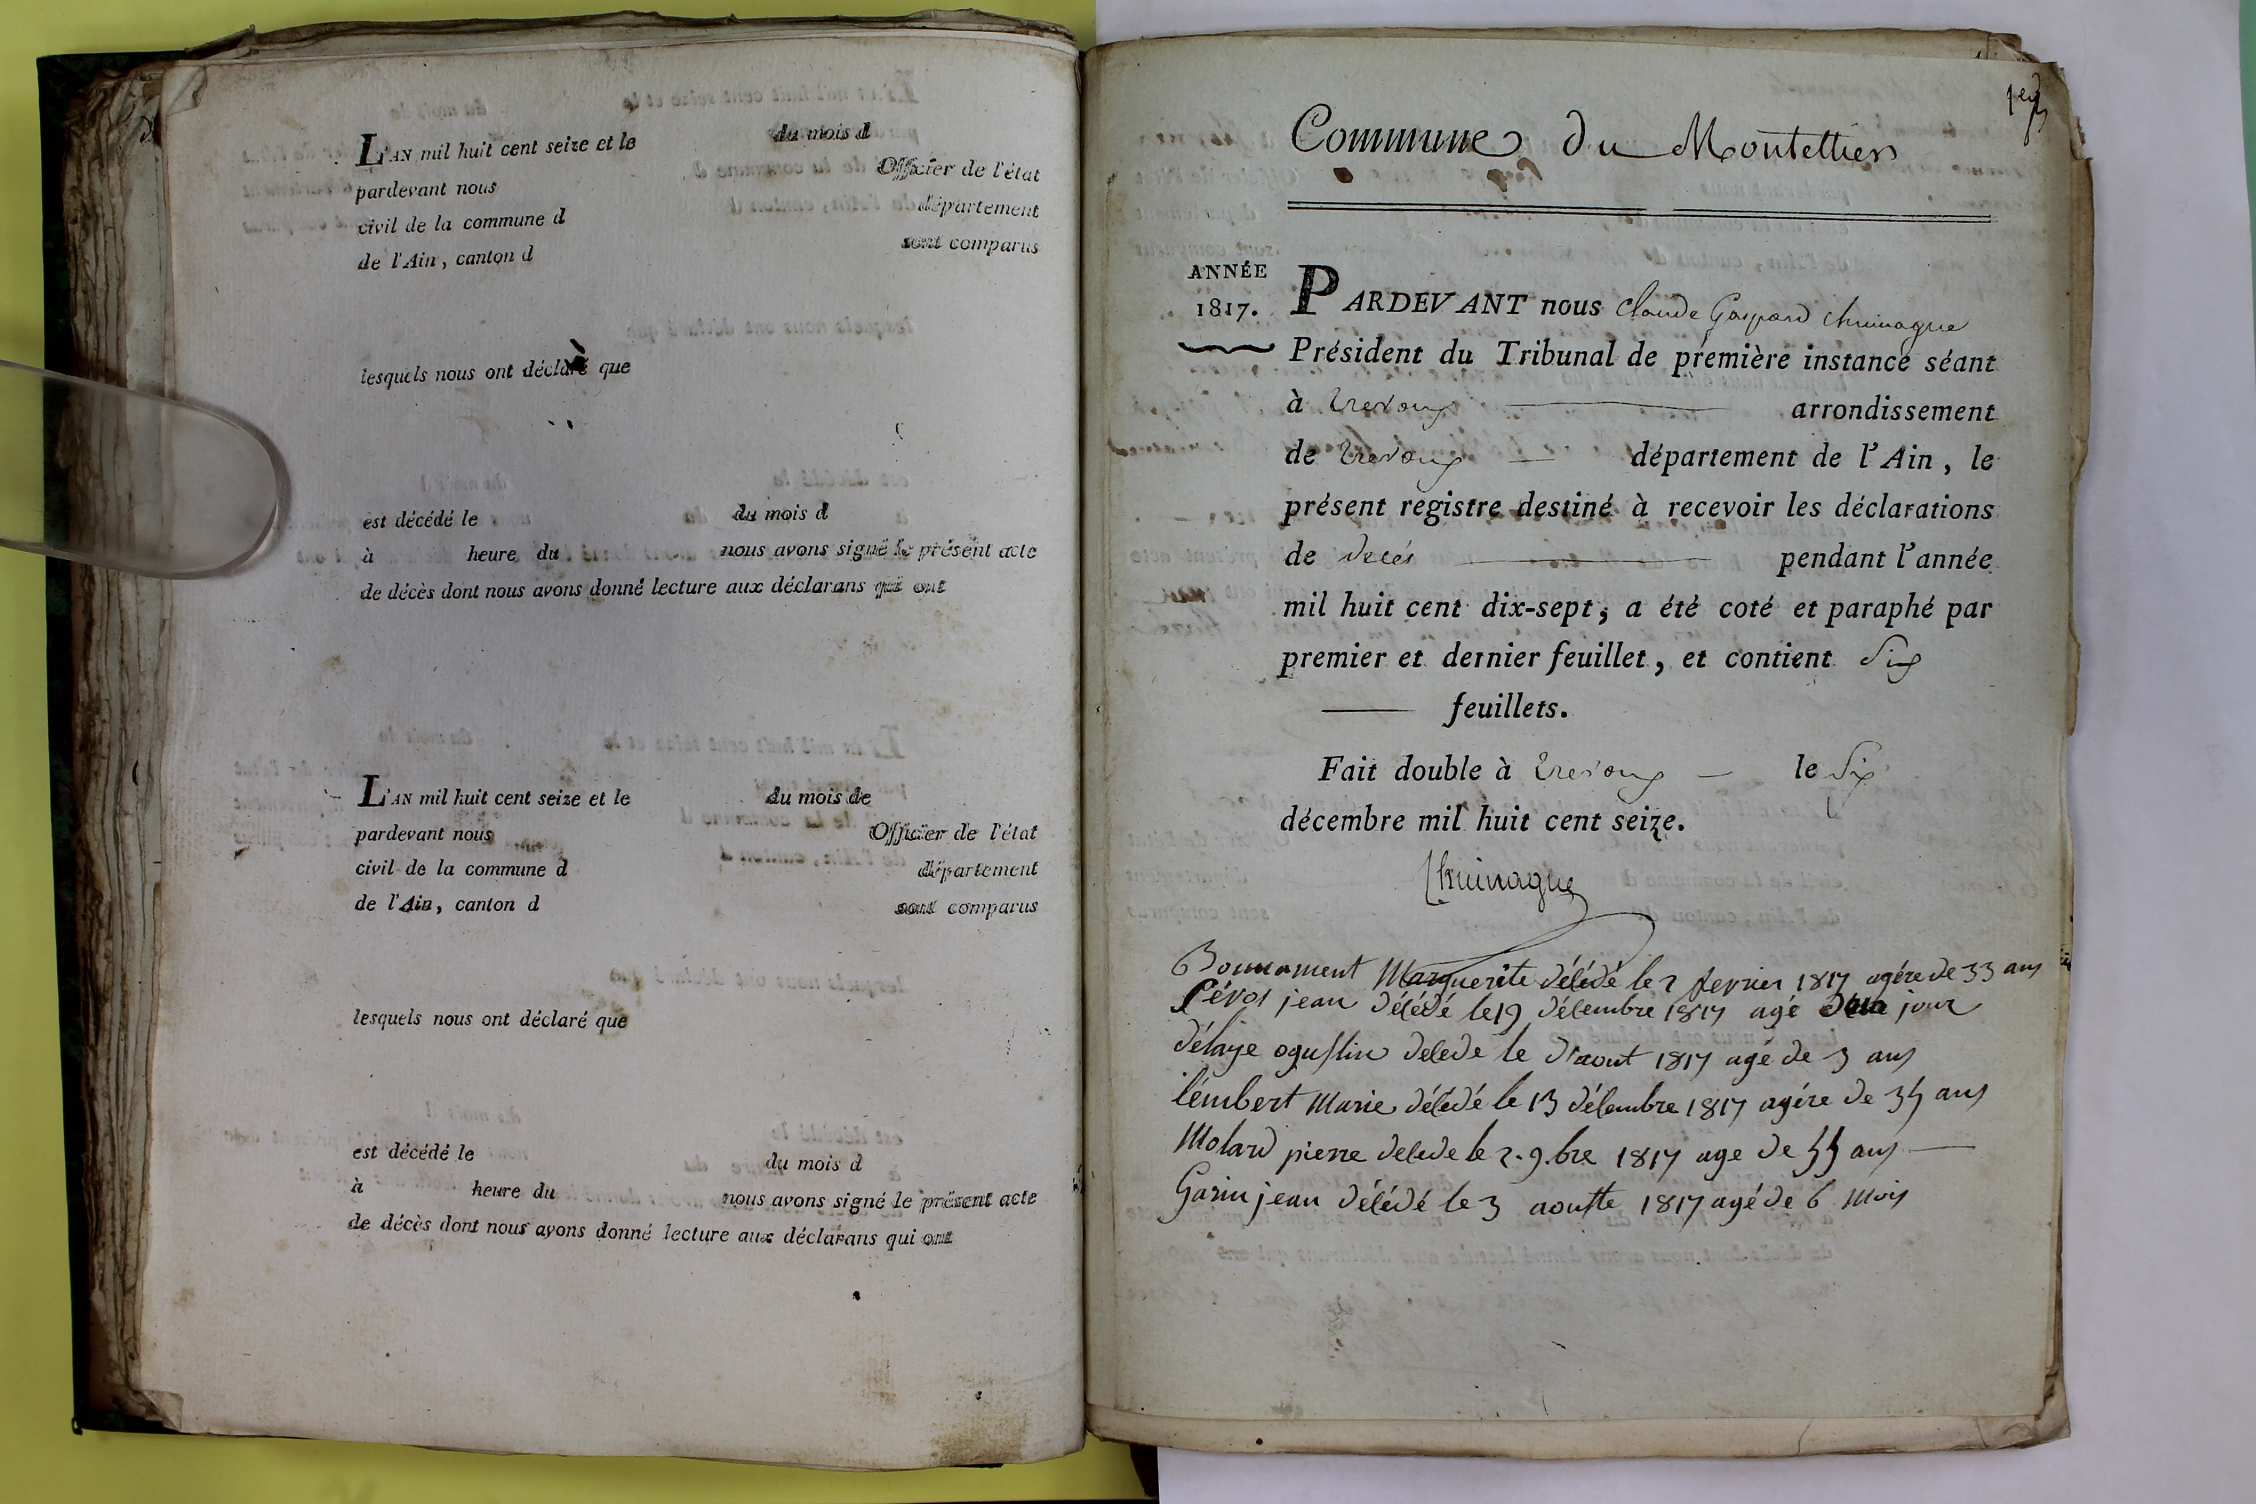 L'AN mil huit cent seize et le du mois d
pardevant nous Officier de l'état
civil de la commune d département
de l'Ain, canton d sont comparus
lesquels nous ont déclaré que
est décédé le du mois d
à heure du nous avons signé le présent acte
de décès dont nous avons donné lecture aux déclarans qui ont
L'AN mil huit cent seize et le du mois de
pardevant nous Officier de l'état
civil de la commune d département
de l'Ain, canton d sont comparus
lesquels nous ont déclaré que
est décédé le du mois d
à heure du nous avons signé le présent acte
de décès dont nous avons donné lecture aux déclarans qui ont
Commune du Montellier
ANNÉE
1817.
PARDEVANT nous Claude Gaspard Chuinague
Président du Tribunal de première instance séant
à Trevoux arrondissement
de Trevoux département de l'Ain, le
présent registre destiné à recevoir les déclarations
de décés pendant l'année
mil huit cent dix-sept, a été coté et paraphé par
premier et dernier feuillet, et contient Six
feuillets.
Fait double à Trevoux le Six
décembre mil huit cent seize.
Chuinague
Bonnament Marguerite décédé le 2 fevrier 1817 agére de 33 ans
jean décédé le 19 décembre 1817 agé jour
délaye ogustin decede le aout 1817 agé de 3 ans
lémbert Marie décédé le 13 décembre 1817 agére de ans
Molard pierre decede le 2. 9.bre 1817 age de ans
Garin jean décédé le 3 aoustte 1817 agé de 6 mois